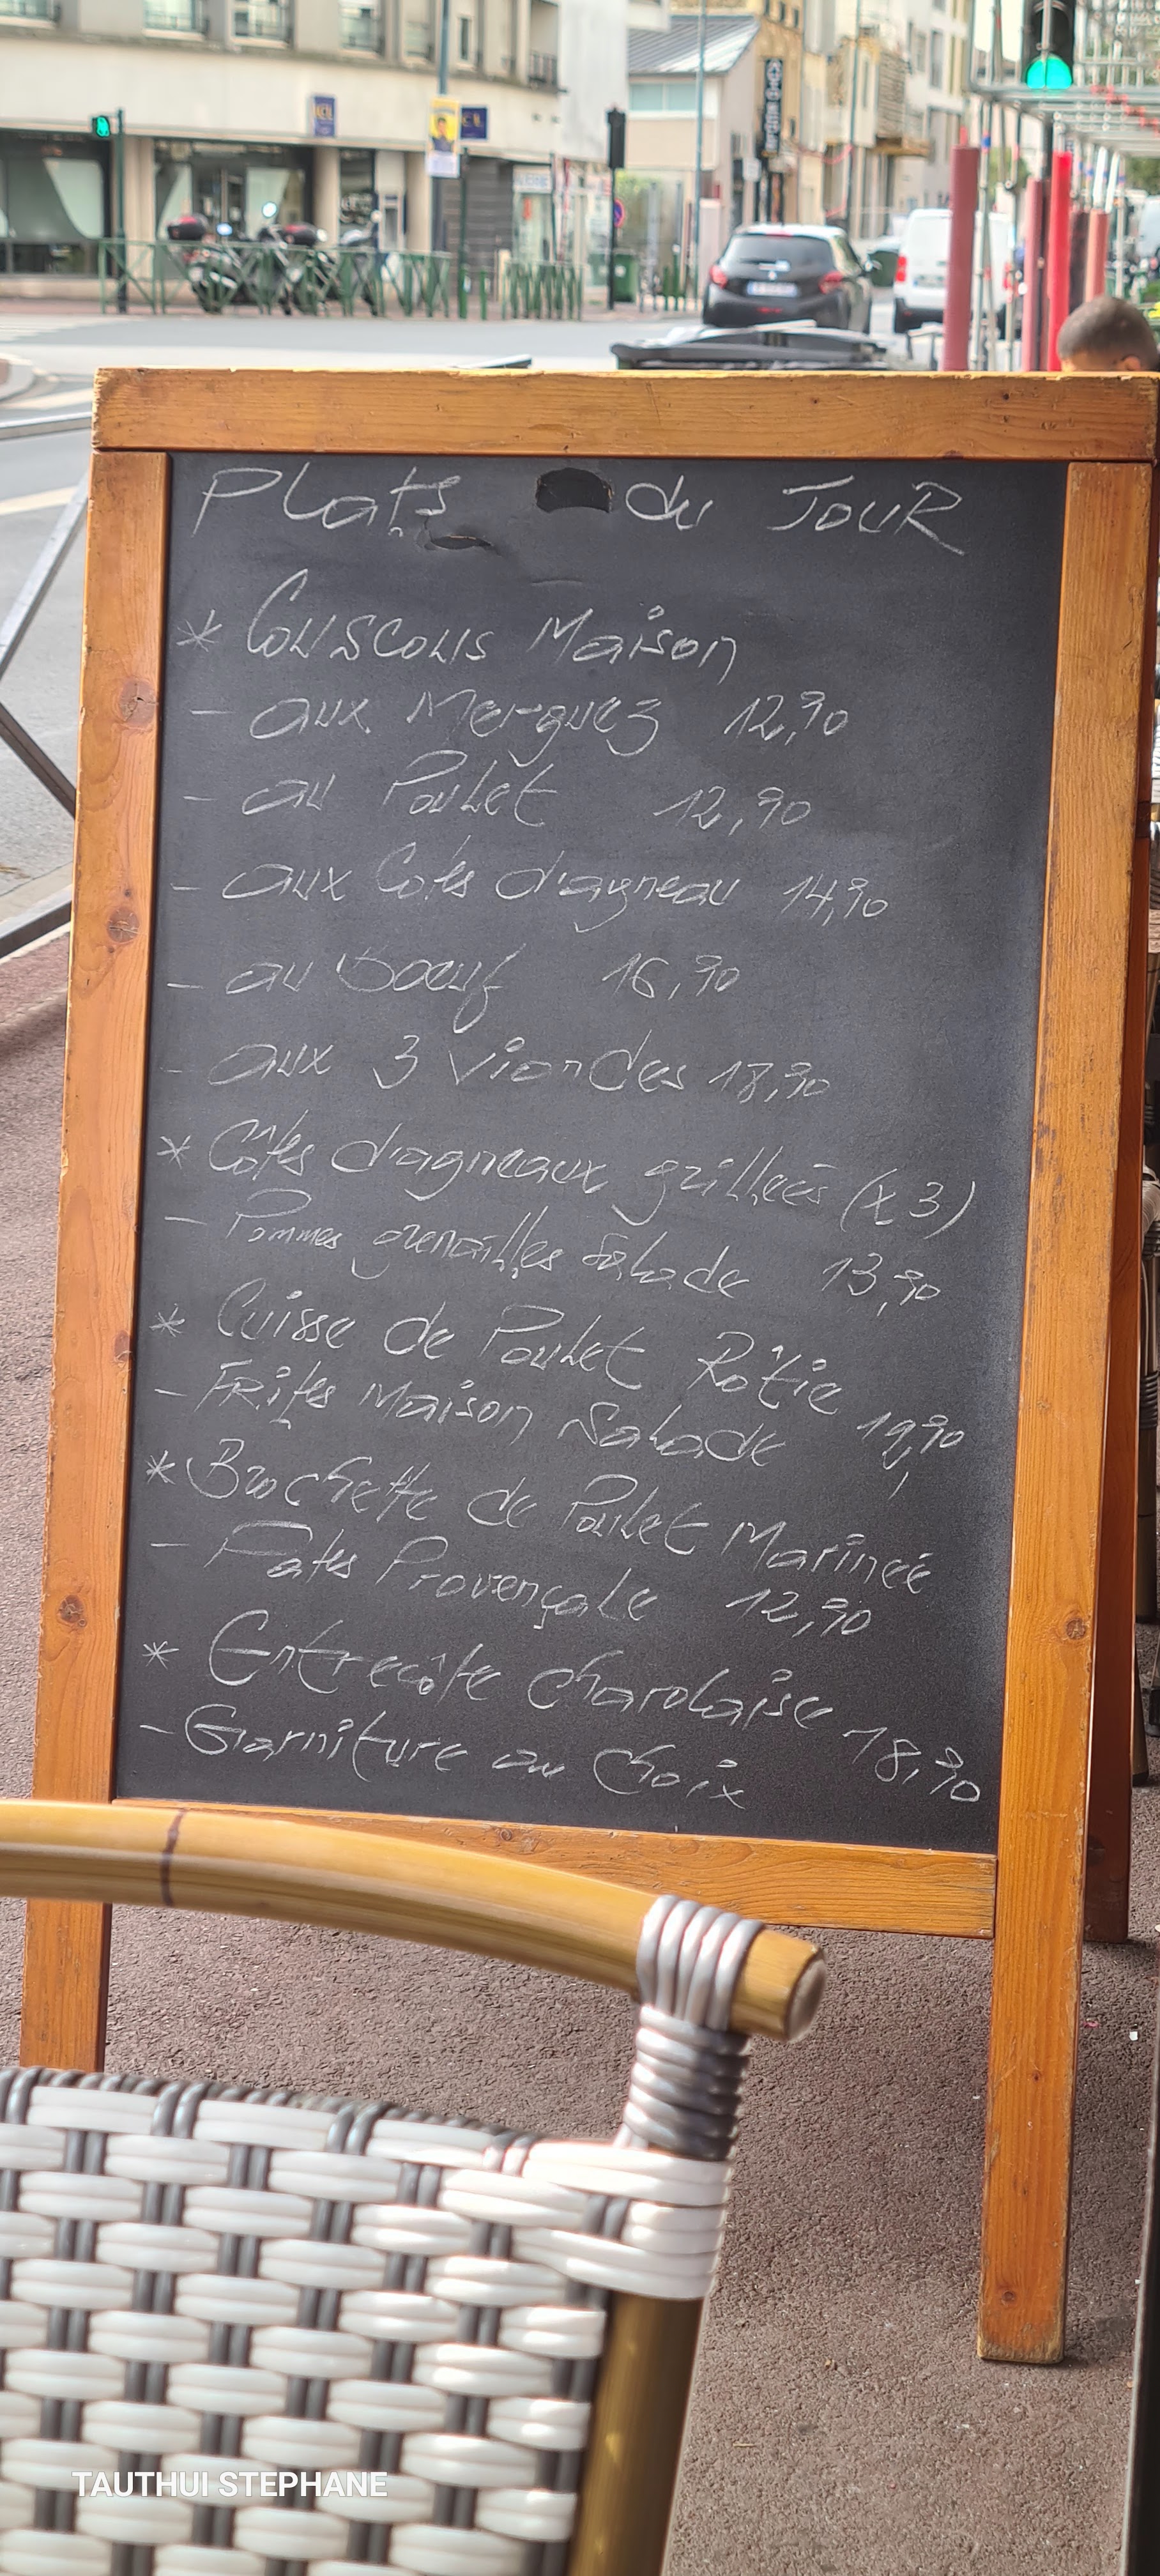 LCL
Plats du JOUR
* Couscous Maison
- aux Merguez 12,90
- au Poulet 12,90
- aux Cotes d'agneau 14,90
- au Boeuf 16,90
- aux 3 viandes 18,90
* Côtes d'agneaux grilleés (x3)
- Pommes grenailles Salade 13,90
* Cuisse de Poulet Rôtie
- FRites Maison Salade
* Brochette de Poulet Marineé
- Pates Provençale 12,90
* Entrecôte charolaise
- Garniture au choix 18,90
TAUTHUI STEPHANE